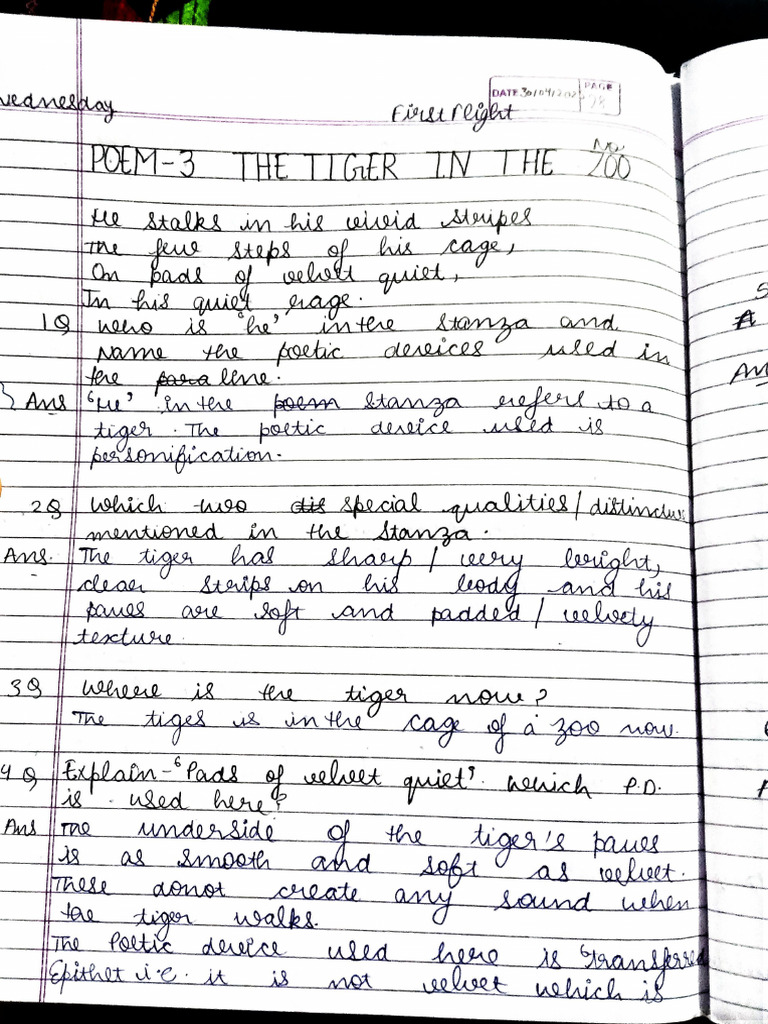 Wednesday
First Flight
DATE 30/04/202
PAGE No. 28
POEM-3 THE TIGER IN THE ZOO
He stalks in his vivid stripes
The few steps of his cage,
On pads of velvet quiet,
In his quiet rage.
1Q who is 'he' in the stanza and
Name the poetic devices used in
the para line.
Ans 'He' in the poem stanza refers to a
tiger. The poetic device used is
personification.
2Q Which two dis special qualities/
mentioned in the stanza.
Ans. The tiger has sharp / very bright,
clear strips on his body and his
paws are soft and padded / velvety
texture.
3Q Where is the tiger now?
The tiges is in the cage of a zoo now.
4Q Explain - 'Pads of velvet quiet'. Which P.D.
is used here?
Ans The underside of the tiger's paws
is as smooth and soft as velvet.
These donot create any sound when
the tiger walks.
The Poetic device used here is 'transferred
Epithet i.e. it is not velvet which is